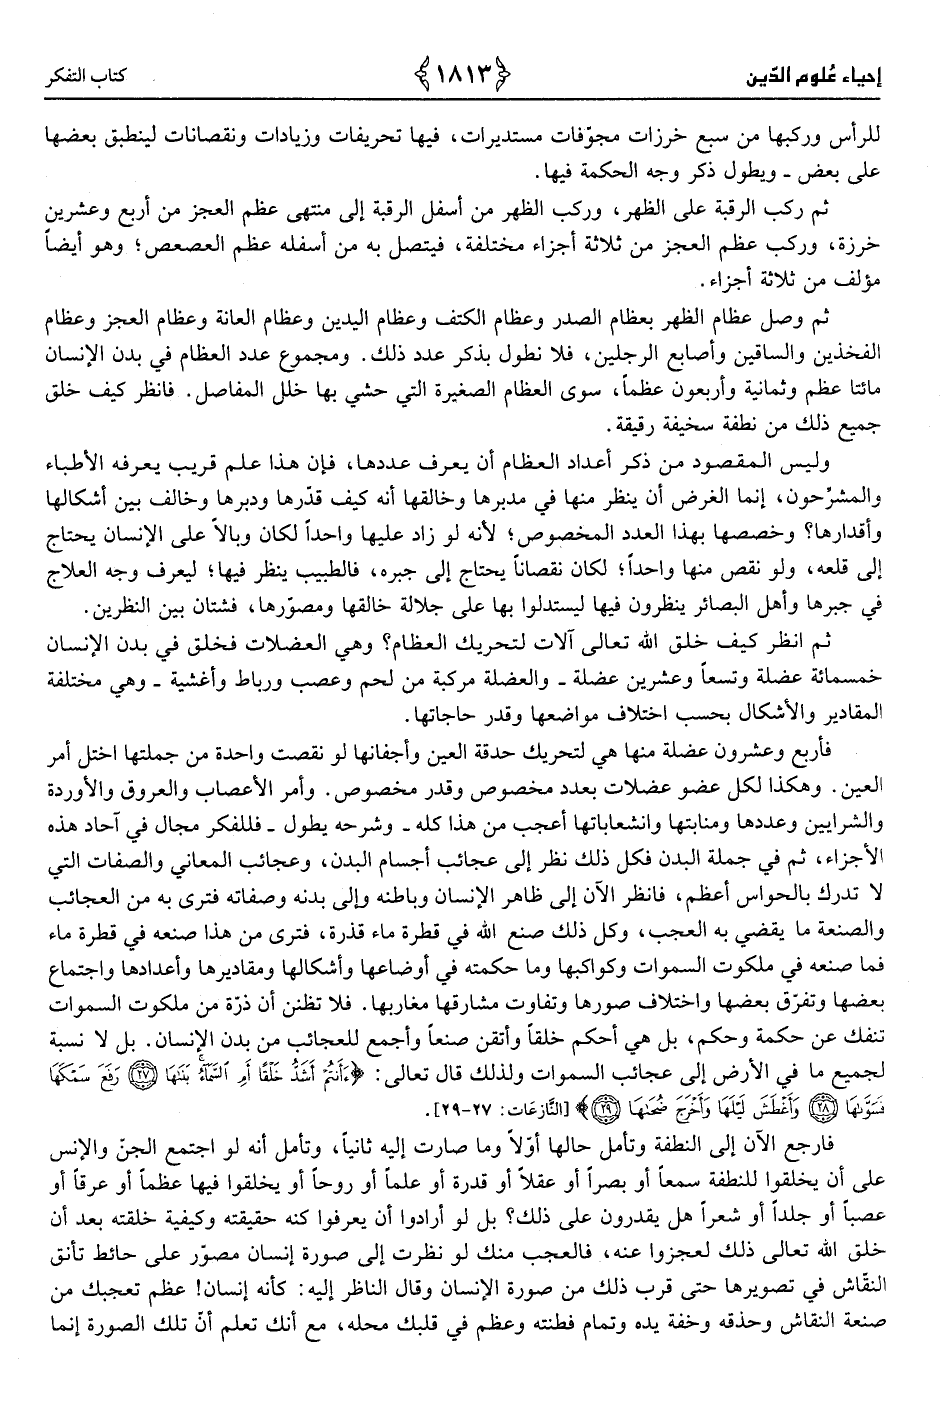 إحياء عُلوم الدّين ﴿١٨١٣﴾ كتاب التفكر
للرأس وركبها من سبع خرزات مجوّفات مستديرات، فيها تحريفات وزيادات ونقصانات لينطبق بعضها
على بعض ـ ويطول ذكر وجه الحكمة فيها.
ثم ركب الرقبة على الظهر، وركب الظهر من أسفل الرقبة إلى منتهى عظم العجز من أربع وعشرين
خرزة، وركب عظم العجز من ثلاثة أجزاء مختلفة، فيتصل به من أسفله عظم العصعص؛ وهو أيضاً
مؤلف من ثلاثة أجزاء.
ثم وصل عظام الظهر بعظام الصدر وعظام الكتف وعظام اليدين وعظام العانة وعظام العجز وعظام
الفخذين والساقين وأصابع الرجلين، فلا نطول بذكر عدد ذلك. ومجموع عدد العظام في بدن الإنسان
مائتا عظم وثمانية وأربعون عظماً، سوى العظام الصغيرة التي حشي بها خلل المفاصل. فانظر كيف خلق
جميع ذلك من نطفة سخيفة رقيقة.
وليس المقصود من ذكر أعداد العظام أن يعرف عددها، فإن هذا علم قريب يعرفه الأطباء
والمشرّحون، إنما الغرض أن ينظر منها في مدبرها وخالقها أنه كيف قدّرها ودبرها وخالف بين أشكالها
وأقدارها؟ وخصصها بهذا العدد المخصوص؛ لأنه لو زاد عليها واحداً لكان وبالاً على الإنسان يحتاج
إلى قلعه، ولو نقص منها واحداً؛ لكان نقصاناً يحتاج إلى جبره، فالطبيب ينظر فيها؛ ليعرف وجه العلاج
في جبرها وأهل البصائر ينظرون فيها ليستدلوا بها على جلالة خالقها ومصوّرها، فشتان بين النظرين.
ثم انظر كيف خلق الله تعالى آلات لتحريك العظام؟ وهي العضلات فخلق في بدن الإنسان
خمسمائة عضلة وتسعاً وعشرين عضلة ـ والعضلة مركبة من لحم وعصب ورباط وأغشية ـ وهي مختلفة
المقادير والأشكال بحسب اختلاف مواضعها وقدر حاجاتها.
فأربع وعشرون عضلة منها هي لتحريك حدقة العين وأجفانها لو نقصت واحدة من جملتها اختل أمر
العين. وهكذا لكل عضو عضلات بعدد مخصوص وقدر مخصوص. وأمر الأعصاب والعروق والأوردة
والشرايين وعددها ومنابتها وانشعاباتها أعجب من هذا كله ـ وشرحه يطول ـ فللفكر مجال في آحاد هذه
الأجزاء، ثم في جملة البدن فكل ذلك نظر إلى عجائب أجسام البدن، وعجائب المعاني والصفات التي
لا تدرك بالحواس أعظم، فانظر الآن إلى ظاهر الإنسان وباطنه وإلى بدنه وصفاته فترى به من العجائب
والصنعة ما يقضي به العجب، وكل ذلك صنع الله في قطرة ماء قذرة، فترى من هذا صنعه في قطرة ماء
فما صنعه في ملكوت السموات وكواكبها وما حكمته في أوضاعها وأشكالها ومقاديرها وأعدادها واجتماع
بعضها وتفرّق بعضها واختلاف صورها وتفاوت مشارقها مغاربها. فلا تظنن أن ذرّة من ملكوت السموات
تنفك عن حكمة وحكم، بل هي أحكم خلقاً وأتقن صنعاً وأجمع للعجائب من بدن الإنسان. بل لا نسبة
لجميع ما في الأرض إلى عجائب السموات ولذلك قال تعالى: ﴿ءَأَنتُمْ أَشَدُّ خَلْقًا أَمِ ٱلسَّمَآءُ بَنَىٰهَا ﴿٢٧﴾ رَفَعَ سَمْكَهَا
فَسَوَّىٰهَا ﴿٢٨﴾ وَأَغْطَشَ لَيْلَهَا وَأَخْرَجَ ضُحَىٰهَا ﴿٢٩﴾﴾ [النَّازعَات: ٢٧-٢٩].
فارجع الآن إلى النطفة وتأمل حالها أوّلاً وما صارت إليه ثانياً، وتأمل أنه لو اجتمع الجنّ والإنس
على أن يخلقوا للنطفة سمعاً أو بصراً أو عقلاً أو قدرة أو علماً أو روحاً أو يخلقوا فيها عظماً أو عرقاً أو
عصباً أو جلداً أو شعراً هل يقدرون على ذلك؟ بل لو أرادوا أن يعرفوا كنه حقيقته وكيفية خلقته بعد أن
خلق الله تعالى ذلك لعجزوا عنه، فالعجب منك لو نظرت إلى صورة إنسان مصوّر على حائط تأنق
النقّاش في تصويرها حتى قرب ذلك من صورة الإنسان وقال الناظر إليه: كأنه إنسان! عظم تعجبك من
صنعة النقاش وحذقه وخفة يده وتمام فطنته وعظم في قلبك محله، مع أنك تعلم أنّ تلك الصورة إنما